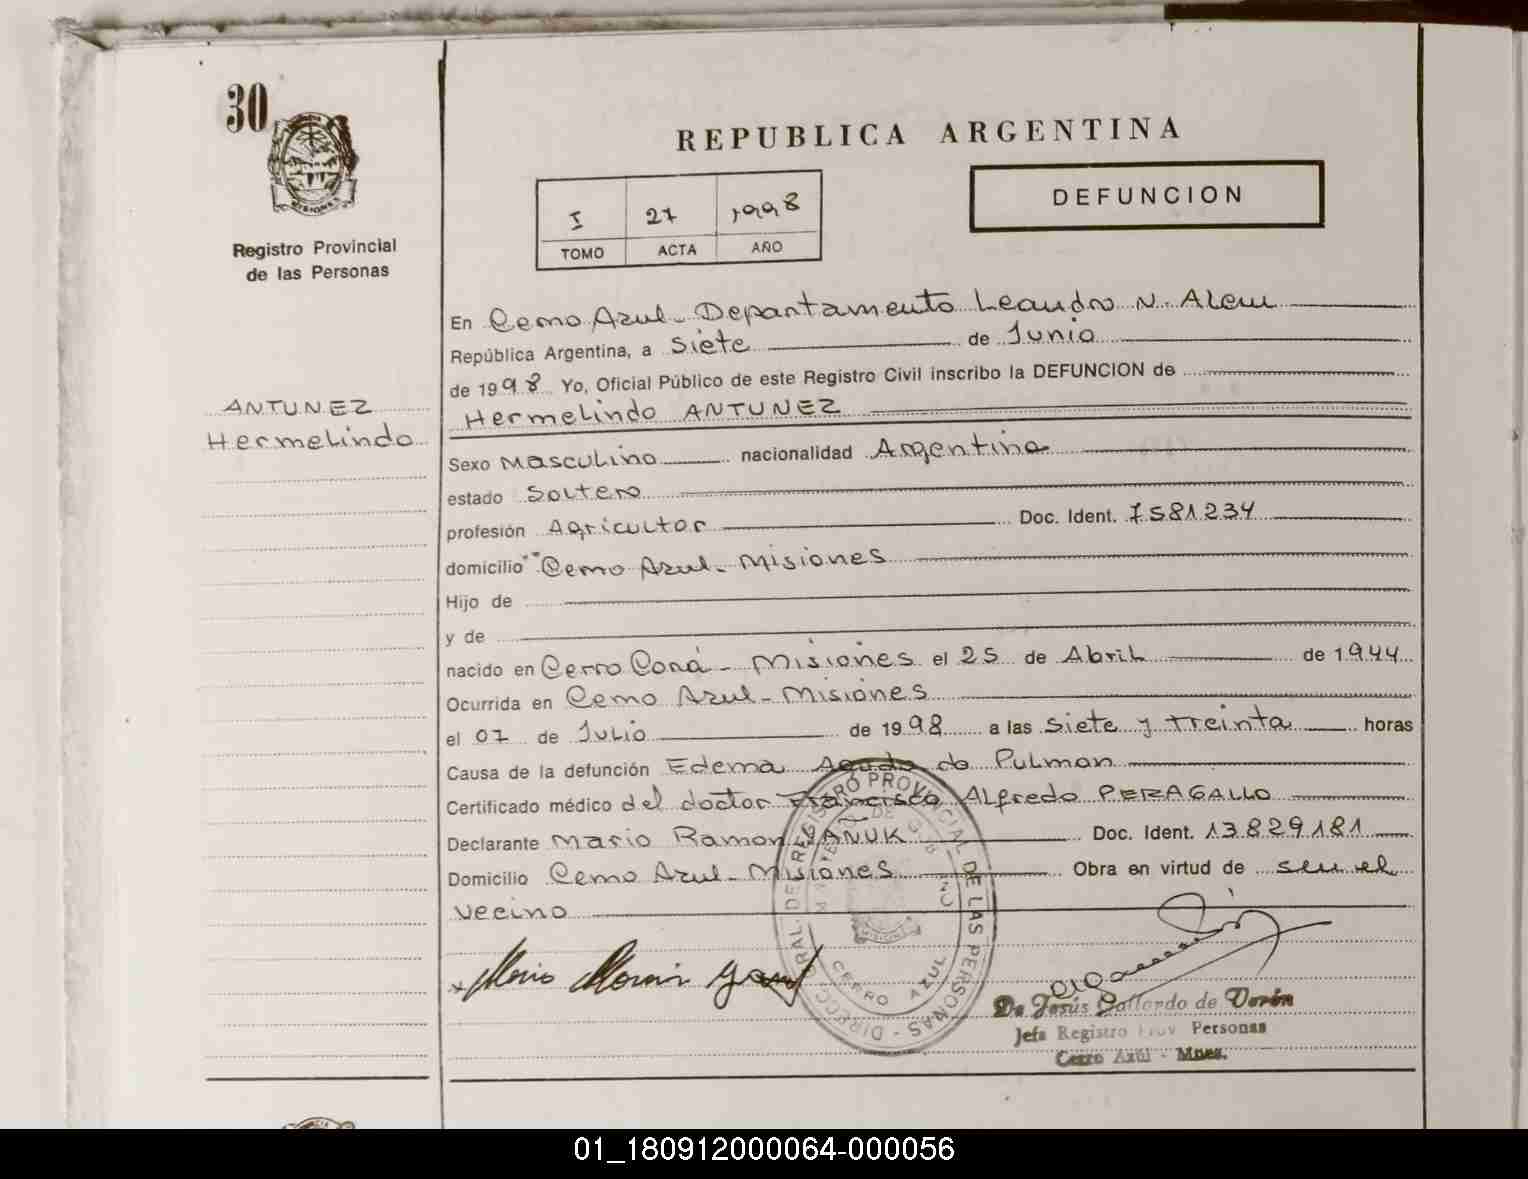 30
MISIONES
Registro Provincial
de las Personas
ANTUNEZ
Hermelindo
REPUBLICA ARGENTINA
I 27 1998
TOMO ACTA AÑO
DEFUNCION
En Cerro Azul - Departamento Leandro N. Alem
República Argentina, a Siete de Junio
de 1998 Yo, Oficial Público de este Registro Civil inscribo la DEFUNCION de
Hermelindo ANTUNEZ
Sexo Masculino nacionalidad Argentina
estado Soltero
profesión Agricultor Doc. Ident. 7581234
domicilio Cerro Azul - Misiones
Hijo de
y de
nacido en Cerro Corá - Misiones el 25 de Abril de 1944
Ocurrida en Cerro Azul - Misiones
el 07 de Julio de 1998 a las siete y treinta horas
Causa de la defunción Edema Agudo do Pulmon
Certificado médico del doctor Francisco Alfredo PERAGALLO
Declarante Mario Ramon YANUK Doc. Ident. 13.829.181
Domicilio Cerro Azul - Misiones Obra en virtud de ser el
vecino
DIRECC. GRAL. DE REGISTRO PROVINCIAL DE LAS PERSONAS
CERRO AZUL
MISIONES
De Jesús Gallardo de Verón
Jefa Registro Prov Personas
Cerro Azul - Mnes.
01_180912000064-000056